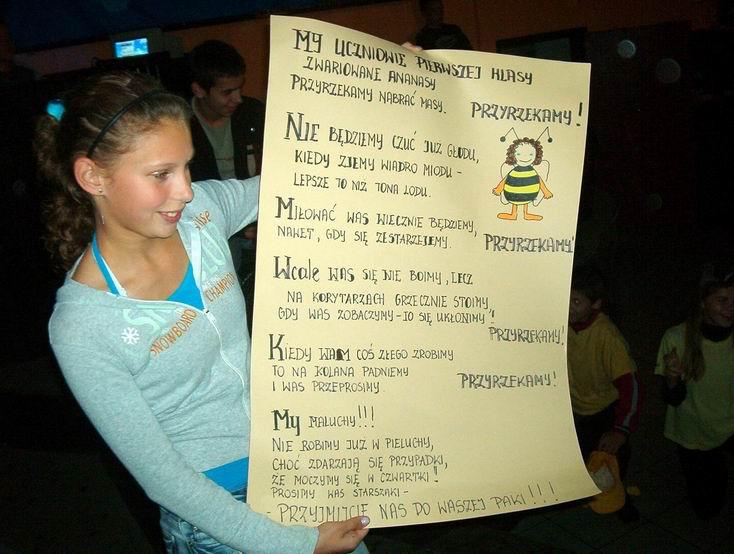 MY UCZNIOWIE PIERWSZEJ KLASY
ZWARIOWANE ANANASY
PRZYRZEKAMY NABRAĆ MASY.
PRZYRZEKAMY!
NIE BĘDZIEMY CZUĆ JUŻ GŁODU,
KIEDY ZJEMY WIADRO MIODU -
LEPSZE TO NIŻ TONA LODU.
MIŁOWAĆ WAS WIECZNIE BĘDZIEMY,
NAWET, GDY SIĘ ZESTARZEJEMY.
PRZYRZEKAMY!
Wcale WAS SIĘ NIE BOIMY, LECZ
NA KORYTARZACH GRZECZNIE STOIMY,
GDY WAS ZOBACZYMY-TO SIĘ UKŁONIMY"
PRZYRZEKAMY!
KIEDY WAM COŚ ZŁEGO ZROBIMY
TO NA KOLANA PADNIEMY
I WAS PRZEPROSIMY.
PRZYRZEKAMY!
My MALUCHY!!!
NIE ROBIMY JUŻ W PIELUCHY,
CHOĆ ZDARZAJĄ SIĘ PRZYPADKI,
ŻE MOCZYMY SIĘ W CZWARTKI!
PROSIMY WAS STARSZAKI -
- PRZYJMIJCIE NAS DO WASZEJ PAKI!!!
SNOWBOARD CHAMPION